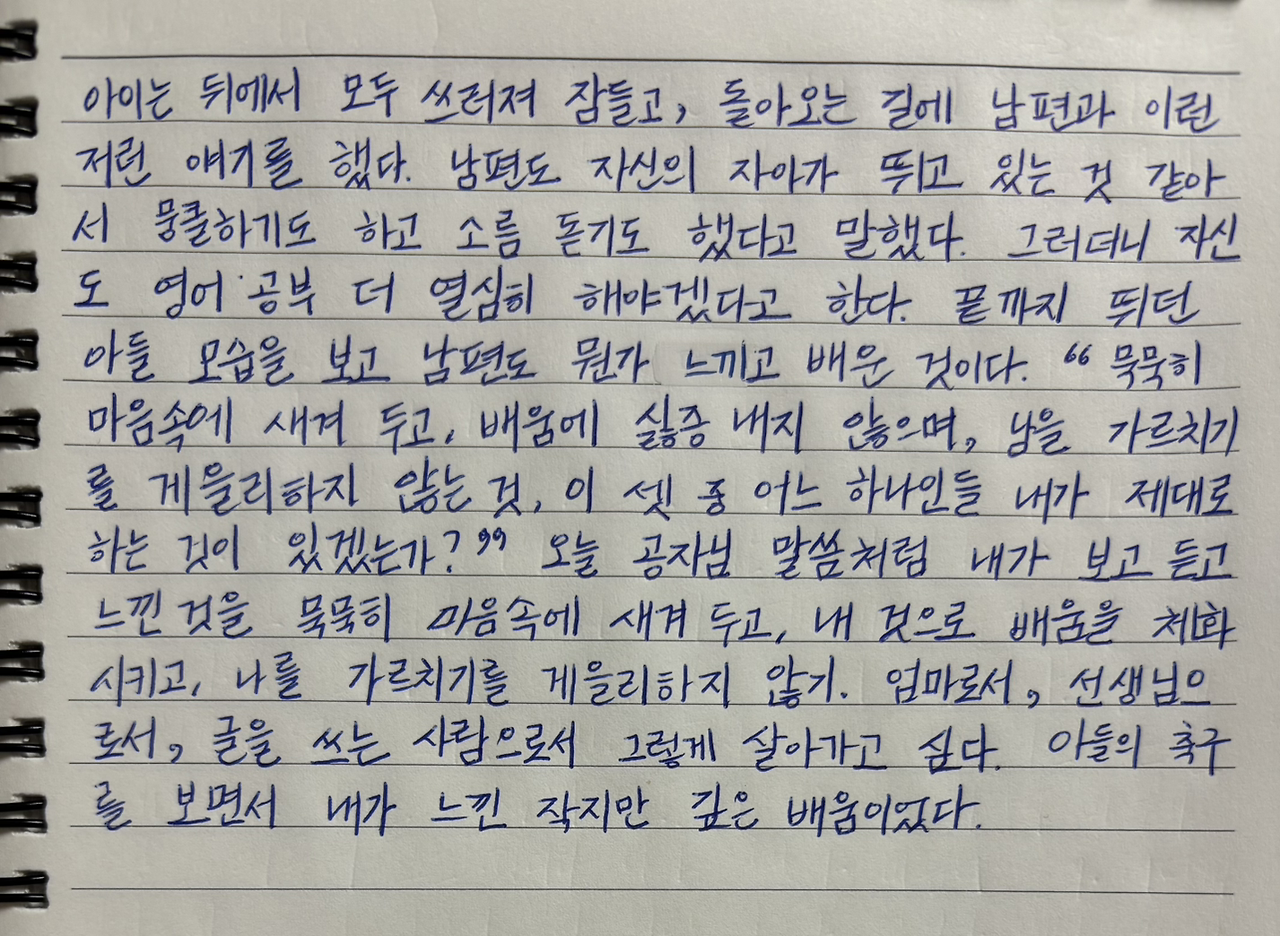 아이는 뒤에서 모두 쓰러져 잠들고, 돌아오는 길에 남편과 이런
저런 얘기를 했다. 남편도 자신의 자아가 뛰고 있는 것 같아
서 뭉클하기도 하고 소름 돋기도 했다고 말했다. 그러더니 자신
도 영어 공부 더 열심히 해야겠다고 한다. 끝까지 뛰던
아들 모습을 보고 남편도 뭔가 느끼고 배운 것이다. “묵묵히
마음속에 새겨 두고, 배움에 싫증 내지 않으며, 남을 가르치기
를 게을리하지 않는 것, 이 셋 중 어느 하나인들 내가 제대로
하는 것이 있겠는가?” 오늘 공자님 말씀처럼 내가 보고 듣고
느낀 것을 묵묵히 마음속에 새겨 두고, 내 것으로 배움을 체화
시키고, 나를 가르치기를 게을리하지 않기. 엄마로서, 선생님으
로서, 글을 쓰는 사람으로서 그렇게 살아가고 싶다. 아들의 축구
를 보면서 내가 느낀 작지만 깊은 배움이었다.